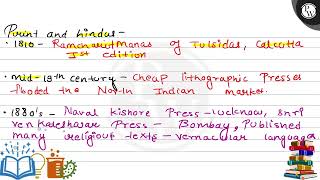 Print and hindus -
• 1810 - Ramcharitmanas of Tulsidas, Calcutta
Ist edition
• mid - 19th century - Cheap lithographic Presses
flooded the North Indian market.
• 1880's - Naval kishore Press - lucknow, Shri
venkateshwar Press - Bombay, Published
many religious texts - vernacular language